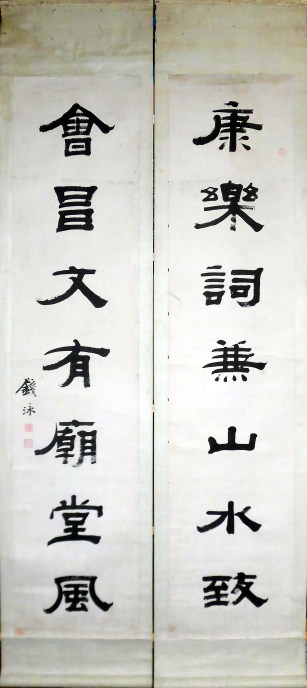 康樂詞兼山水致
會昌文有廟堂風
錢泳